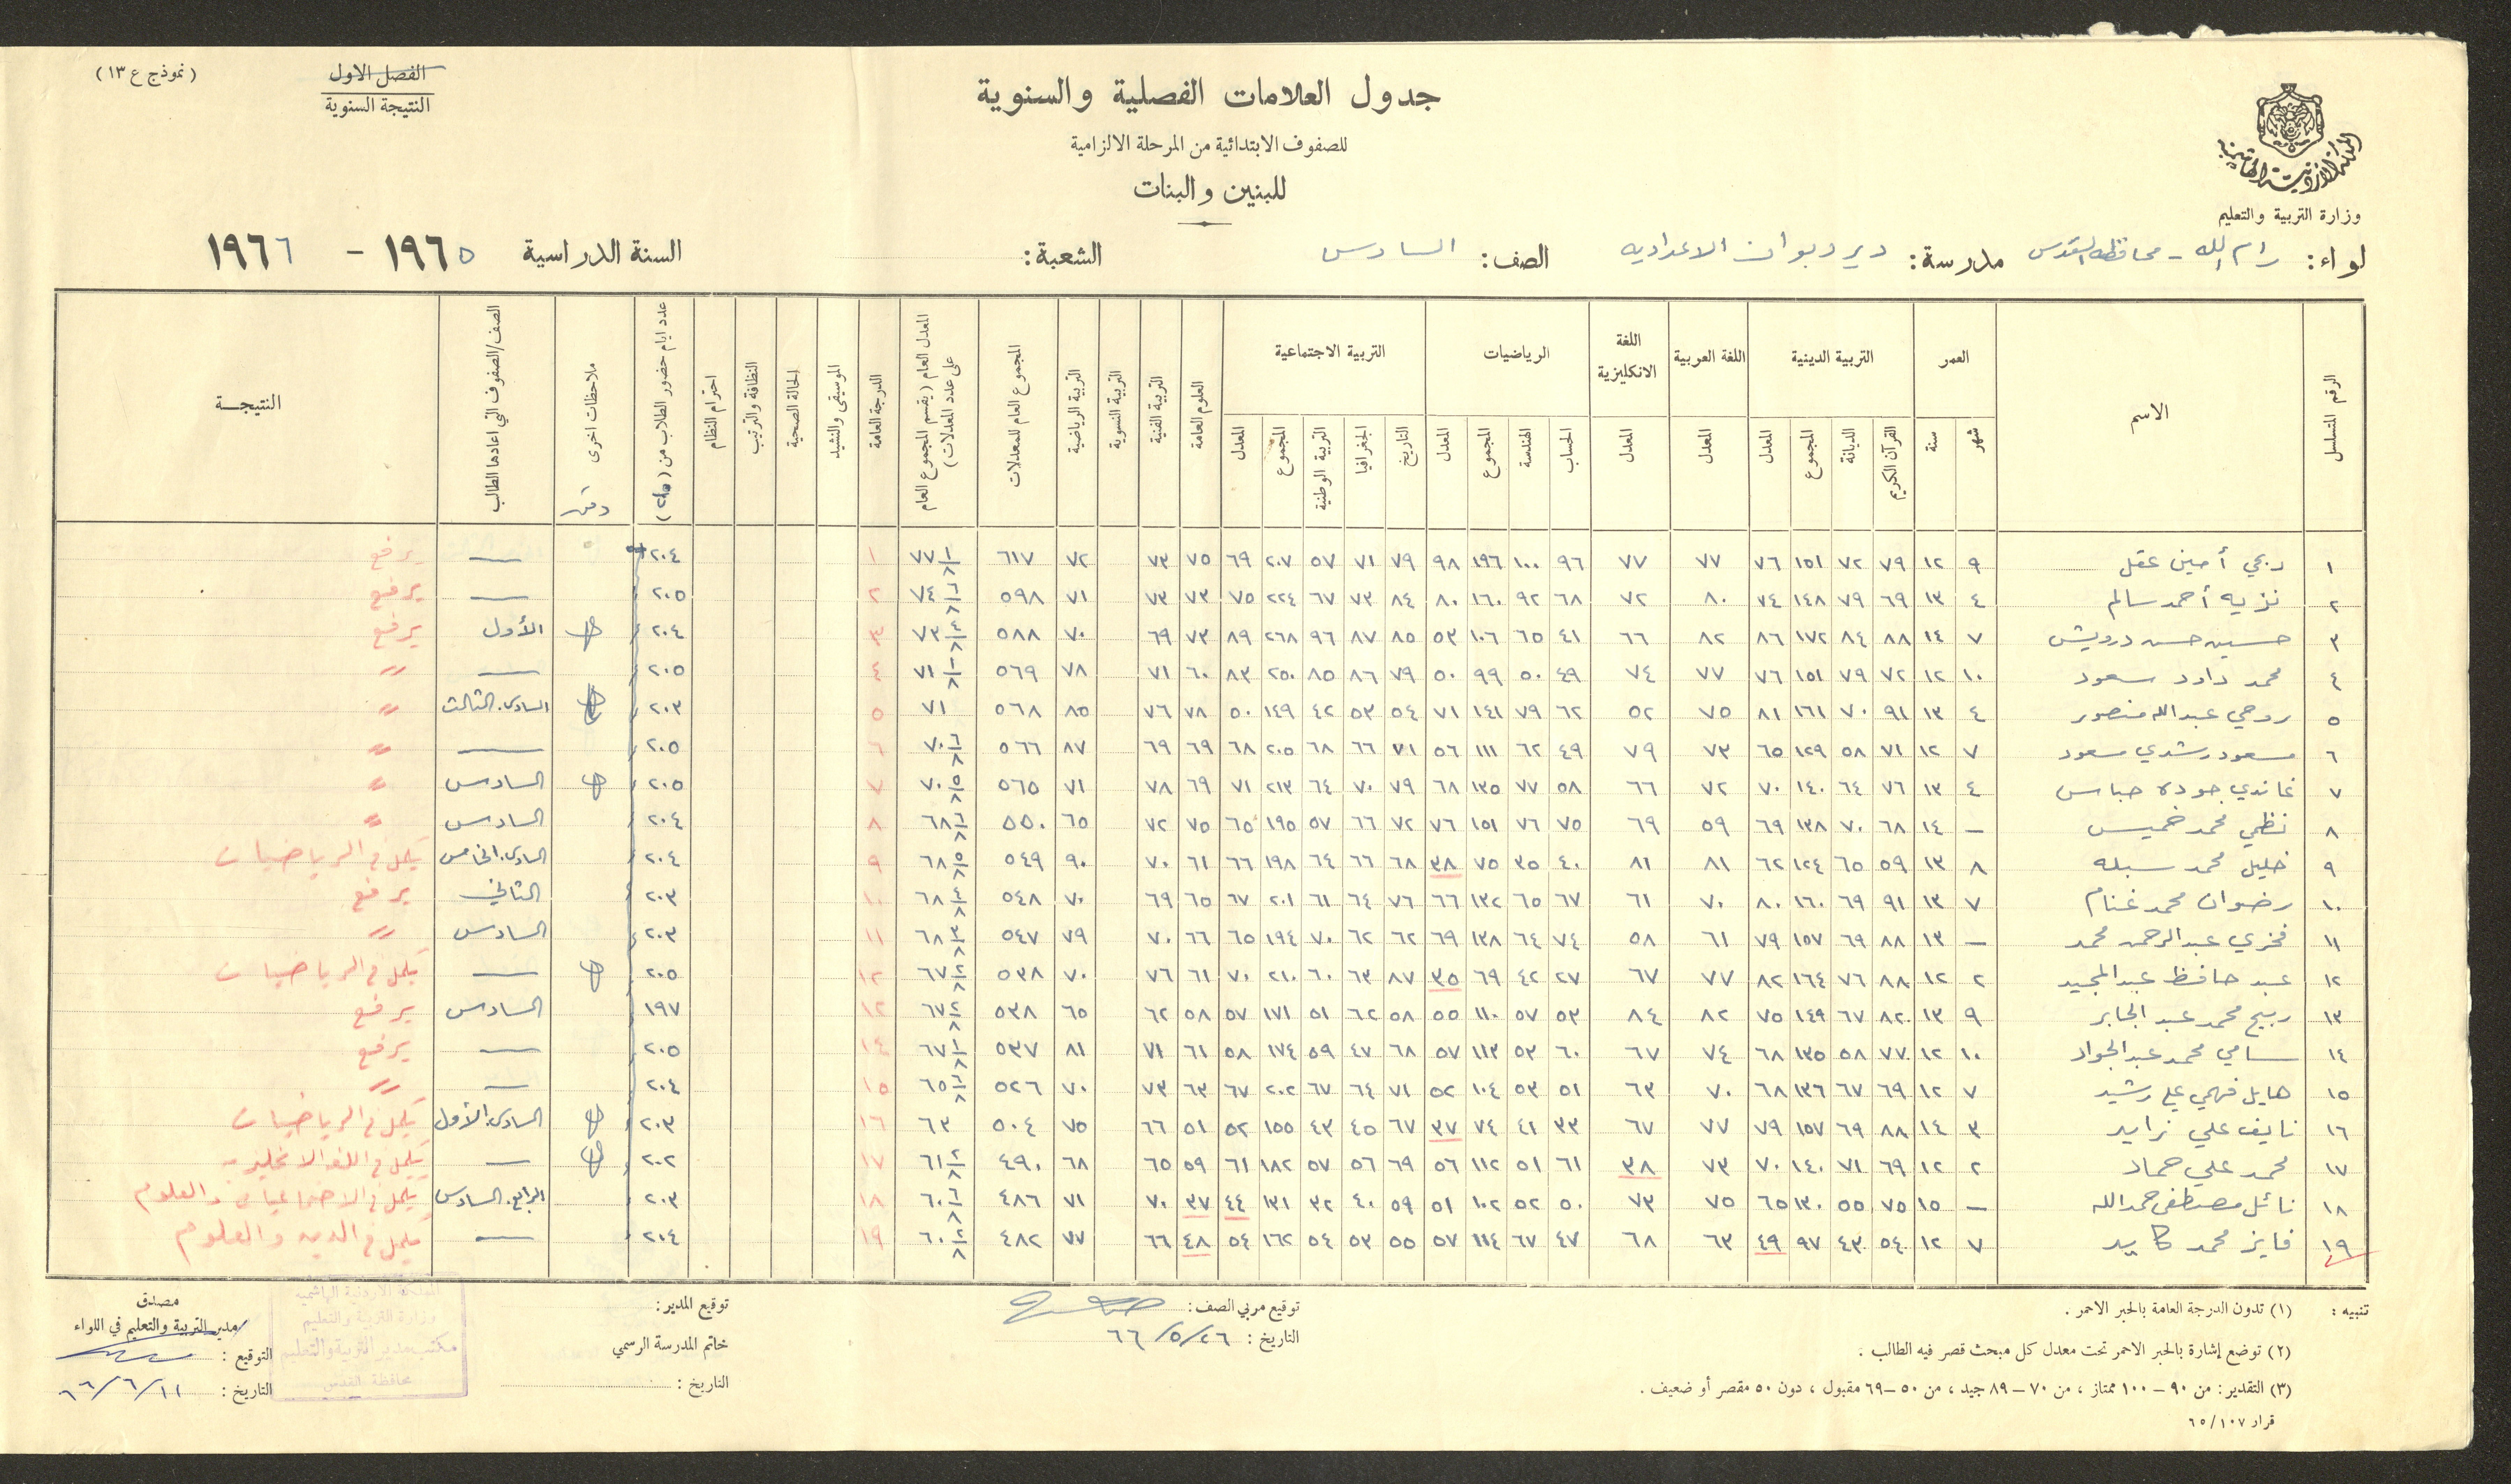 (نموذج ع ١٣)
الفصل الاول
النتيجة السنوية
جدول العلامات الفصلية والسنوية
للصفوف الابتدائية من المرحلة الالزامية
للبنين والبنات
المملكة الاردنية الهاشمية
وزارة التربية والتعليم
لواء: رام الله - محافظة القدس مدرسة: دير دبوان الاعداديه الصف: السادس الشعبة: السنة الدراسية ١٩٦٥ - ١٩٦٦
الرقم المتسلسل الاسم العمر التربية الدينية اللغة العربية اللغة الانكليزية الرياضيات التربية الاجتماعية العلوم العامة التربية الفنية التربية النسوية التربية الرياضية المجموع العام للمعدلات المعدل العام (يقسم المجموع العام على عدد المعدلات) الدرجة العامة الموسيقى والنشيد الحالة الصحية النظافة والترتيب احترام النظام عدد ايام حضور الطلاب من ( ) ملاحظات اخرى الصف/الصفوف التي اعادها الطالب النتيجـة
شهر سنة القرآن الكريم الديانة المجموع المعدل المعدل المعدل الحساب الهندسة المجموع المعدل التاريخ الجغرافيا التربية الوطنية المجموع المعدل
١ ربحي أمين عقل ٩ ١٢ ٧٩ ٧٢ ١٥١ ٧٦ ٧٧ ٧٧ ٩٦ ١٠٠ ١٩٦ ٩٨ ٧٩ ٧١ ٥٧ ٢٠٧ ٦٩ ٧٥ ٧٣ ٧٢ ٦١٧ ٧٧ ١/٨ ١ ٢٠٤ — يرفع
٢ نزيه أحمد سالم ٤ ١٣ ٦٩ ٧٩ ١٤٨ ٧٤ ٨٠ ٧٢ ٦٨ ٩٢ ١٦٠ ٨٠ ٨٤ ٧٣ ٦٧ ٢٢٤ ٧٥ ٧٣ ٧٣ ٧١ ٥٩٨ ٧٤ ٦/٨ ٢ ٢٠٥ — يرفع
٣ حسين حسن درويش ٧ ١٤ ٨٨ ٨٤ ١٧٢ ٨٦ ٨٢ ٦٦ ٤١ ٦٥ ١٠٦ ٥٣ ٨٥ ٨٧ ٩٦ ٢٦٨ ٨٩ ٧٣ ٦٩ ٧٠ ٥٨٨ ٧٣ ٤/٨ ٣ ٢٠٤ الأول يرفع
٤ محمد داود سعود ١٠ ١٢ ٧٢ ٧٩ ١٥١ ٧٦ ٧٧ ٧٤ ٤٩ ٥٠ ٩٩ ٥٠ ٧٩ ٨٦ ٨٥ ٢٥٠ ٨٣ ٦٠ ٧١ ٧٨ ٥٦٩ ٧١ ١/٨ ٤ ٢٠٥ — 〃
٥ روحي عبدالله منصور ٤ ١٣ ٩١ ٧٠ ١٦١ ٨١ ٧٥ ٥٢ ٦٢ ٧٩ ١٤١ ٧١ ٥٤ ٥٣ ٤٢ ١٤٩ ٥٠ ٧٨ ٧٦ ٨٥ ٥٦٨ ٧١ ٥ ٢٠٣ السادس.الثالث 〃
٦ مسعود رشدي مسعود ٧ ١٢ ٧١ ٥٨ ١٢٩ ٦٥ ٧٣ ٧٩ ٤٩ ٦٢ ١١١ ٥٦ ٧١ ٦٦ ٦٨ ٢٠٥ ٦٨ ٦٩ ٦٩ ٨٧ ٥٦٦ ٧٠ ٦/٨ ٦ ٢٠٥ — 〃
٧ غاندي جوده عباس ٤ ١٣ ٧٦ ٦٤ ١٤٠ ٧٠ ٧٢ ٦٦ ٥٨ ٧٧ ١٣٥ ٦٨ ٧٩ ٧٠ ٦٤ ٢١٣ ٧١ ٦٩ ٧٨ ٧١ ٥٦٥ ٧٠ ٥/٨ ٧ ٢٠٥ السادس 〃
٨ نظمي محمد خميس — ١٤ ٦٨ ٧٠ ١٣٨ ٦٩ ٥٩ ٦٩ ٧٥ ٧٦ ١٥١ ٧٦ ٧٢ ٦٦ ٥٧ ١٩٥ ٦٥ ٧٥ ٧٢ ٦٥ ٥٥٠ ٦٨ ٦/٨ ٨ ٢٠٤ السادس 〃
٩ خليل محمد سبله ٨ ١٣ ٥٩ ٦٥ ١٢٤ ٦٢ ٨١ ٨١ ٤٠ ٣٥ ٧٥ ٣٨ ٦٨ ٦٦ ٦٤ ١٩٨ ٦٦ ٦١ ٧٠ ٩٠ ٥٤٩ ٦٨ ٥/٨ ٩ ٢٠٤ السادس.الخامس يكمل في الرياضيات
١٠ رضوان محمد غنام ٧ ١٣ ٩١ ٦٩ ١٦٠ ٨٠ ٧٠ ٦١ ٦٧ ٦٥ ١٣٢ ٦٦ ٧٦ ٦٤ ٦١ ٢٠١ ٦٧ ٦٥ ٦٩ ٧٠ ٥٤٨ ٦٨ ٤/٨ ١٠ ٢٠٣ الثاني يرفع
١١ فخري عبدالرحمن محمد — ١٣ ٨٨ ٦٩ ١٥٧ ٧٩ ٦١ ٥٨ ٧٤ ٦٤ ١٣٨ ٦٩ ٦٢ ٦٢ ٧٠ ١٩٤ ٦٥ ٦٦ ٧٠ ٧٩ ٥٤٧ ٦٨ ٣/٨ ١١ ٢٠٣ السادس 〃
١٢ عبد حافظ عبدالمجيد ٢ ١٢ ٨٨ ٧٦ ١٦٤ ٨٢ ٧٧ ٦٧ ٢٧ ٤٢ ٦٩ ٣٥ ٨٧ ٦٣ ٦٠ ٢١٠ ٧٠ ٦١ ٧٦ ٧٠ ٥٣٨ ٦٧ ٢/٨ ١٢ ٢٠٥ — يكمل في الرياضيات
١٣ ربيع محمد عبد الجابر ٩ ١٣ ٨٢ ٦٧ ١٤٩ ٧٥ ٨٢ ٨٤ ٥٣ ٥٧ ١١٠ ٥٥ ٥٨ ٦٢ ٥١ ١٧١ ٥٧ ٥٨ ٦٢ ٦٥ ٥٣٨ ٦٧ ٢/٨ ١٢ ١٩٧ السادس يرفع
١٤ سامي محمد عبدالجواد ١٠ ١٢ ٧٧ ٥٨ ١٣٥ ٦٨ ٧٤ ٦٧ ٦٠ ٥٣ ١١٣ ٥٧ ٦٨ ٤٧ ٥٩ ١٧٤ ٥٨ ٦١ ٧١ ٨١ ٥٣٧ ٦٧ ١/٨ ١٤ ٢٠٥ — يرفع
١٥ هايل فهمي علي رشيد ٧ ١٢ ٦٩ ٦٧ ١٣٦ ٦٨ ٧٠ ٦٣ ٥١ ٥٣ ١٠٤ ٥٢ ٧١ ٦٤ ٦٧ ٢٠٢ ٦٧ ٦٣ ٧٣ ٧٠ ٥٢٦ ٦٥ ٦/٨ ١٥ ٢٠٤ — 〃
١٦ نايف علي زايد ٣ ١٤ ٨٨ ٦٩ ١٥٧ ٧٩ ٧٧ ٦٧ ٣٣ ٤١ ٧٤ ٣٧ ٦٧ ٤٥ ٤٣ ١٥٥ ٥٢ ٥١ ٦٦ ٧٥ ٥٠٤ ٦٣ ١٦ ٢٠٣ السادس.الأول يكمل في الرياضيات
١٧ محمد علي حماد ٢ ١٢ ٦٩ ٧١ ١٤٠ ٧٠ ٧٣ ٣٨ ٦١ ٥١ ١١٢ ٥٦ ٦٩ ٥٦ ٥٧ ١٨٢ ٦١ ٥٩ ٦٥ ٦٨ ٤٩٠ ٦١ ٢/٨ ١٧ ٢٠٢ — يكمل في اللغه الانجليزيه
١٨ نائل مصطفى حمدالله — ١٥ ٧٥ ٥٥ ١٣٠ ٦٥ ٧٥ ٧٣ ٥٠ ٥٢ ١٠٢ ٥١ ٥٩ ٤٠ ٣٢ ١٣١ ٤٤ ٣٧ ٧٠ ٧١ ٤٨٦ ٦٠ ٦/٨ ١٨ ٢٠٣ الرابع.السادس يكمل في الاجتماعيات والعلوم
١٩ فايز محمد كايد ٧ ١٢ ٥٤ ٤٣ ٩٧ ٤٩ ٦٣ ٦٨ ٤٧ ٦٧ ١١٤ ٥٧ ٥٥ ٥٣ ٥٤ ١٦٢ ٥٤ ٤٨ ٦٦ ٧٧ ٤٨٢ ٦٠ ٢/٨ ١٩ ٢٠٤ — يكمل في الدين والعلوم
تنبيه : (١) تدون الدرجة العامة بالحبر الاحمر .
(٢) توضع إشارة بالحبر الاحمر تحت معدل كل مبحث قصر فيه الطالب .
(٣) التقدير : من ٩٠ – ١٠٠ ممتاز ، من ٧٠ – ٨٩ جيد ، من ٥٠ – ٦٩ مقبول ، دون ٥٠ مقصر أو ضعيف .
قرار ٦٥/١٠٧
توقيع مربي الصف :
التاريخ : ٢٦/٥/٦٦
توقيع المدير :
خاتم المدرسة الرسمي
التاريخ :
المملكة الأردنية الهاشمية
وزارة التربية والتعليم
مكتب مدير التربية والتعليم
محافظة القدس
مصدق
مدير التربية والتعليم في اللواء
التوقيع :
التاريخ : ١١/٦/٦٦